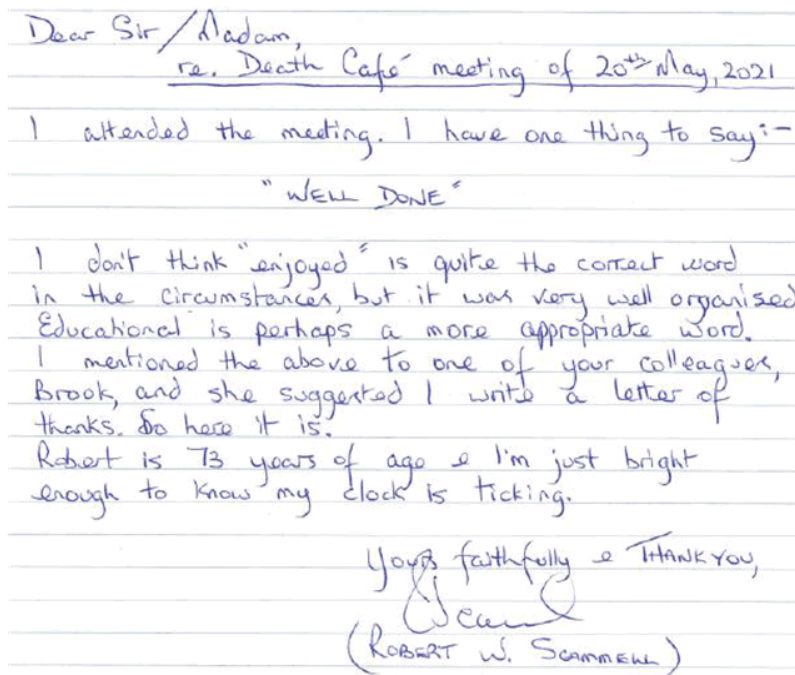 Dear Sir/Madam,
re. Death Café meeting of 20th May, 2021
I attended the meeting. I have one thing to say:-
"WELL DONE"
I don't think "enjoyed" is quite the correct word
in the circumstances, but it was very well organised
Educational is perhaps a more appropriate word.
I mentioned the above to one of your colleagues,
Brook, and she suggested I write a letter of
thanks. So here it is.
Robert is 73 years of age & I'm just bright
enough to know my clock is ticking.
Yours faithfully & THANK YOU,
(ROBERT W. SCAMMELL)